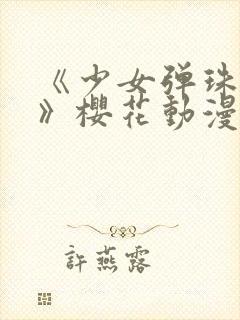 《少女弹珠
》櫻花動漫
許燕露